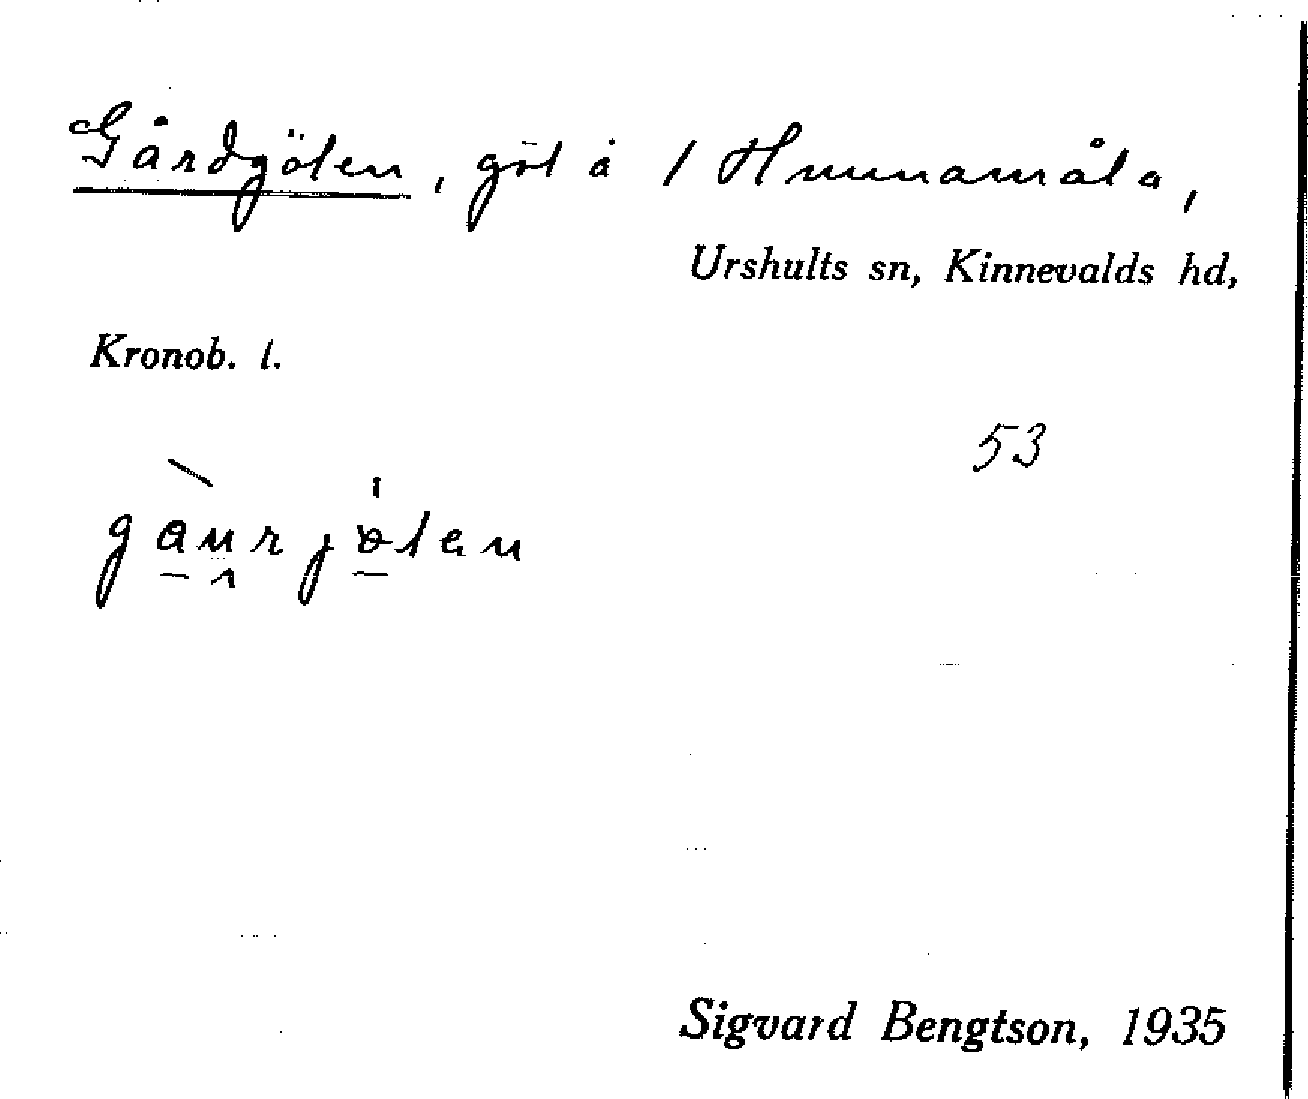 Gårdgölen, göl å 1 Hunnamåla,
Urshults sn, Kinnevalds hd,
Kronob. l.
53
Sigvard Bengtson, 1935